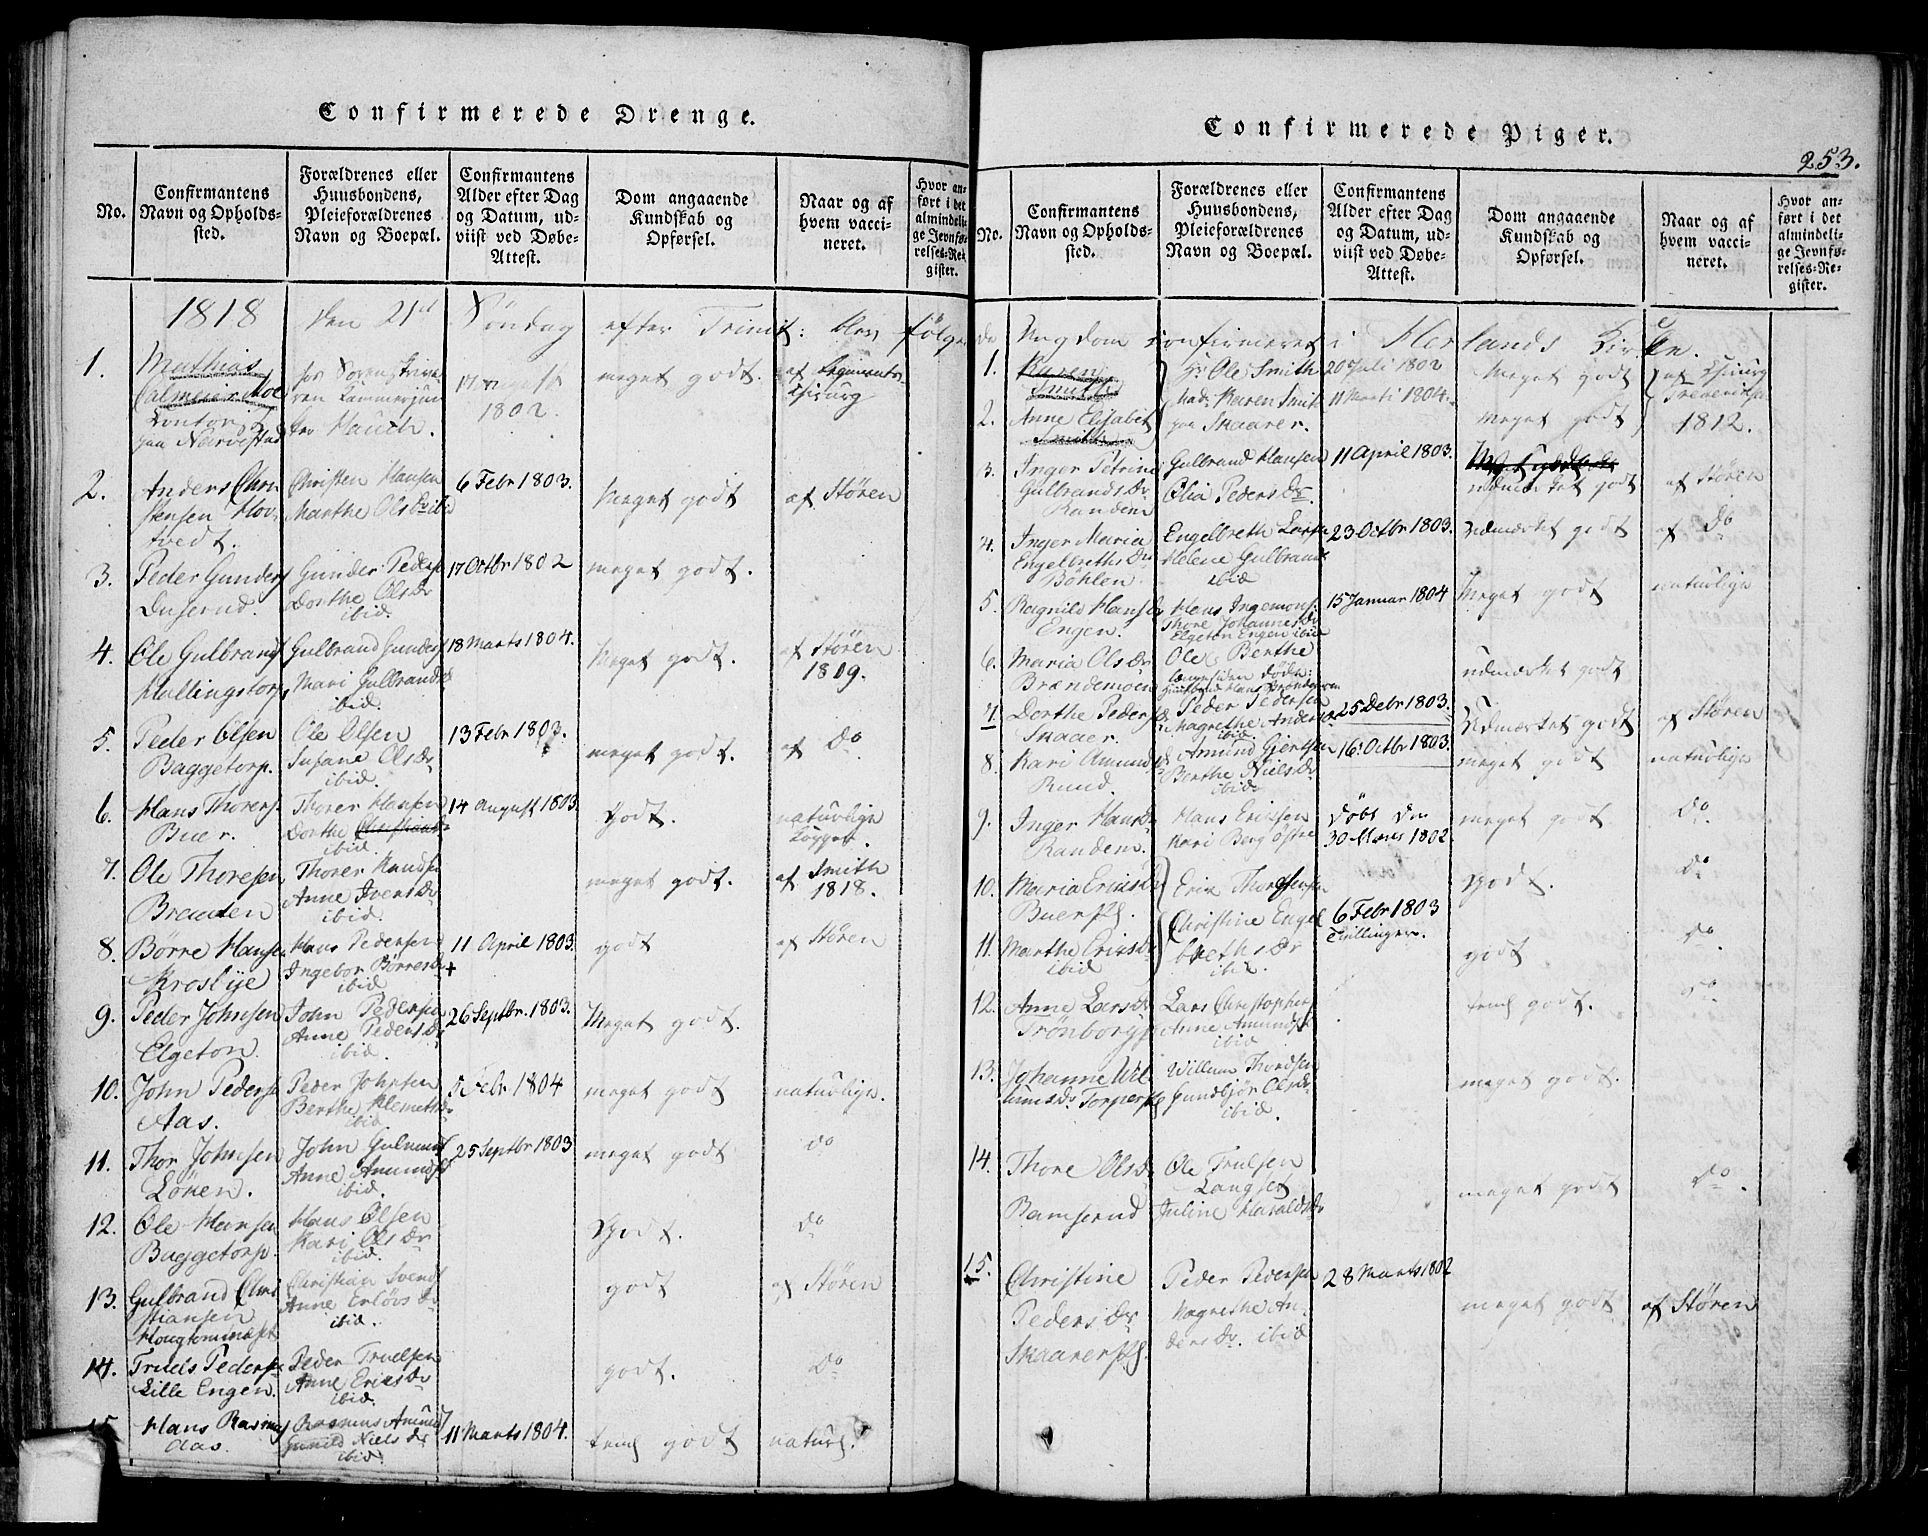 Confirmerede Drenge.
No.
Confirmantens
Navn og Opholds-
sted.
Forældrenes eller
Huusbondens,
Pleieforældrenes
Navn og Boepæl.
Confirmantens
Alder efter Dag
og Datum, ud-
viist ved Døbe-
Attest.
Dom angaaende
Kundskab og
Opførsel.
Naar og af
hvem vacci-
neret.
Hvor an-
ført i det
almindeli-
ge Jevnfø-
relses-Re-
gister.
1818 den 21de Søndag efter Trinit: blev følgen
1.
Mathias
Calmeier Moe
paa Narvestad
Kammerjun
ker Hauch.
1802.
meget godt.
af Regiments
Chirurg
2.
Anders Chri
stensen Hov-
tvedt.
Christen Hansen
Marthe Ols Dr ibid
6 Febr 1803.
Meget godt
af Støren
3.
Peder Gunders
Duserud.
Gunder Peders
Dorthe Ols Dr
ibid
17 Octbr 1802
meget godt.
4.
Ole Gulbrands
Hullingstorp
Gulbrand Gunders
Mari Gulbrands
ibid
18 Marts 1804.
Meget godt.
af Støren
1809.
5.
Peder Olsen
Baggetorp.
Ole Olsen
Susane Ols Dr
ibid
13 Febr 1803.
meget godt.
af Do
6.
Hans Thorers
Buer.
Thorer Hansen
Dorthe Christians Dr
ibid
14 August 1803.
Godt.
naturlige
Kopper.
7.
Ole Thoresen
Brenden
Thorer Knudsen
Anne Ivers Dr
ibid
meget godt.
af Smith
1818.
8.
Børre Hansen
Krosbye
Hans Pedersen
Ingebor Børres Dr
ibid
11 April 1803.
+
godt
af Støren
9.
Peder Johnsen
Elgeton.
John Pedersen
Anne Peders Dr
ibid.
26 Septbr. 1803.
Meget godt.
10.
John Pedersen
Aas.
Peder Johnsen
Berthe Klemets Dr
ibid
5 Febr 1804
meget godt
naturlige.
11.
Thor Johnsen
Löken.
John
Anne Amunds
ibid.
25 Septbr 1803
meget godt
do
12.
Ole Hansen
Baggetorp.
Hans Olsen
Kari Ols Dr
ibid.
Godt.
do
13.
Gulbrand Chri
stiansen
Christian Svends
Anne Erlövs Dr
ibid.
godt
af Støren
14.
Truels Peders
Lille Engen.
Peder Truelsen
Anne Eriks Dr
ibid
godt.
Do
15
Hans Rasmus
Aas.
Rasmus Amunds
Gunild Niels Dr
ibid
11 Marts 1804.
teml godt
naturl.
Confirmerede Piger.
253.
No.
Confirmantens
Navn og Opholds-
sted.
Forældrenes eller
Huusbondens,
Pleieforældrenes
Navn og Boepæl.
Confirmantens
Alder efter Dag
og Datum, ud-
viist ved Døbe-
Attest.
Dom angaaende
Kundskab og
Opførsel.
Naar og af
hvem vacci-
neret.
Hvor an-
ført i det
almindeli-
ge Jevnfø-
relses-Re-
gister.
de Ungdom confirmeret i Herlands Kirke.
1.
Karen
Smith
Hr Ole Smith
20 Juli 1802
Meget godt
af Chirurg
2.
Anne Elisabet
Smith
Mad. Karen Smit
paa Skaarer.
11 Marti 1804.
meget godt
Frederiksen
1812.
3.
Inger Petrine
Gulbrands Dr
Randem
Gulbrand Hansen
Olia Peders Dr.
11 April 1803.
udmærket godt
af Støren
4.
Inger Maria
Engelbreths Dr
Böhlen
Engelbreth Larsen
Helene Gulbrands
ibid
23 Octbr 1803.
udmærket godt
af Do
5.
Ragnild Hans Dr
Engen.
Hans Ingemons.
Thore Johannes Dr
Elgeton Engen ibid
15 Januar 1804
Meget godt
naturlige
6.
Maria Ols Dr
Brændemoen
Ole & Berthe
længesiden døde:
udmærket godt
7.
Dorthe Peders Dr
Skaaer.
Peder Pedersen
Magrethe Anders Dr
ibid.
25 Debr 1803.
Udmærket godt
af Støren
8.
Kari Amunds Dr
Ruud.
Amund Giertsen
Berthe Niels Dr
ibid
16 Octbr 1803.
meget godt
naturlige
9.
Inger Hans Dr
Randem.
Hans Eriksen
Kari Berg Østre
döbt den
30 Marts 1802.
meget godt.
Do
10.
Maria Eriks Dr
Buerspl.
Erik Thoresen
Godt.
Do
Christine Engel
breths Dr
ibid.
6 Febr 1803
Tvillinger.
11.
Marthe Eriks Dr
ibid
godt
Do
12.
Anne Lars Dr
Trönborg
Lars Christophers
Anne Amunds Dr
ibid
teml godt.
Do
13.
Johanne Wil
lums Dr. Torperspl
Willum Thordsen
Gundbjör Ols Dr
ibid.
meget godt.
14.
Thore Ols Dr
Bamserud
Ole Trulsen
Langset
Juline Haralds Dr
meget godt
Do
15.
Christine
Peders Dr
Skaarerspl.
Peder Pedersen
Magrethe An-
ders Dr. ibid
28 Marts 1802
meget godt
af Støren